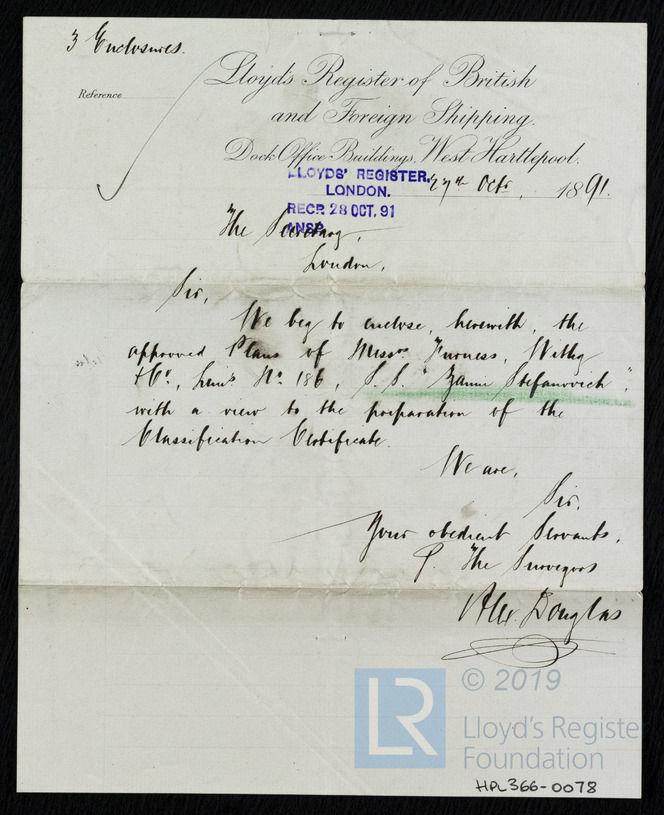 3 Enclosures.
Reference
Lloyd's Register of British
and Foreign Shipping.
Dock Office Buildings, West Hartlepool.
LLOYDS' REGISTER,
LONDON.
27th Octr. 1891.
RECD 28 OCT. 91
ANSD
The Secretary,
London,
Sir,
We beg to enclose, herewith, the
approved Plans of Messrs Furness, Withy
& Co., No. 186, S.S. "Zanni Stefanovich",
with a view to the preparation of the
Classification Certificate.
We are,
Sir,
Your obedient Servants,
P. The Surveyors
Alex. Douglas
LR
© 2019
Lloyd's Register
Foundation
HPL366-0078